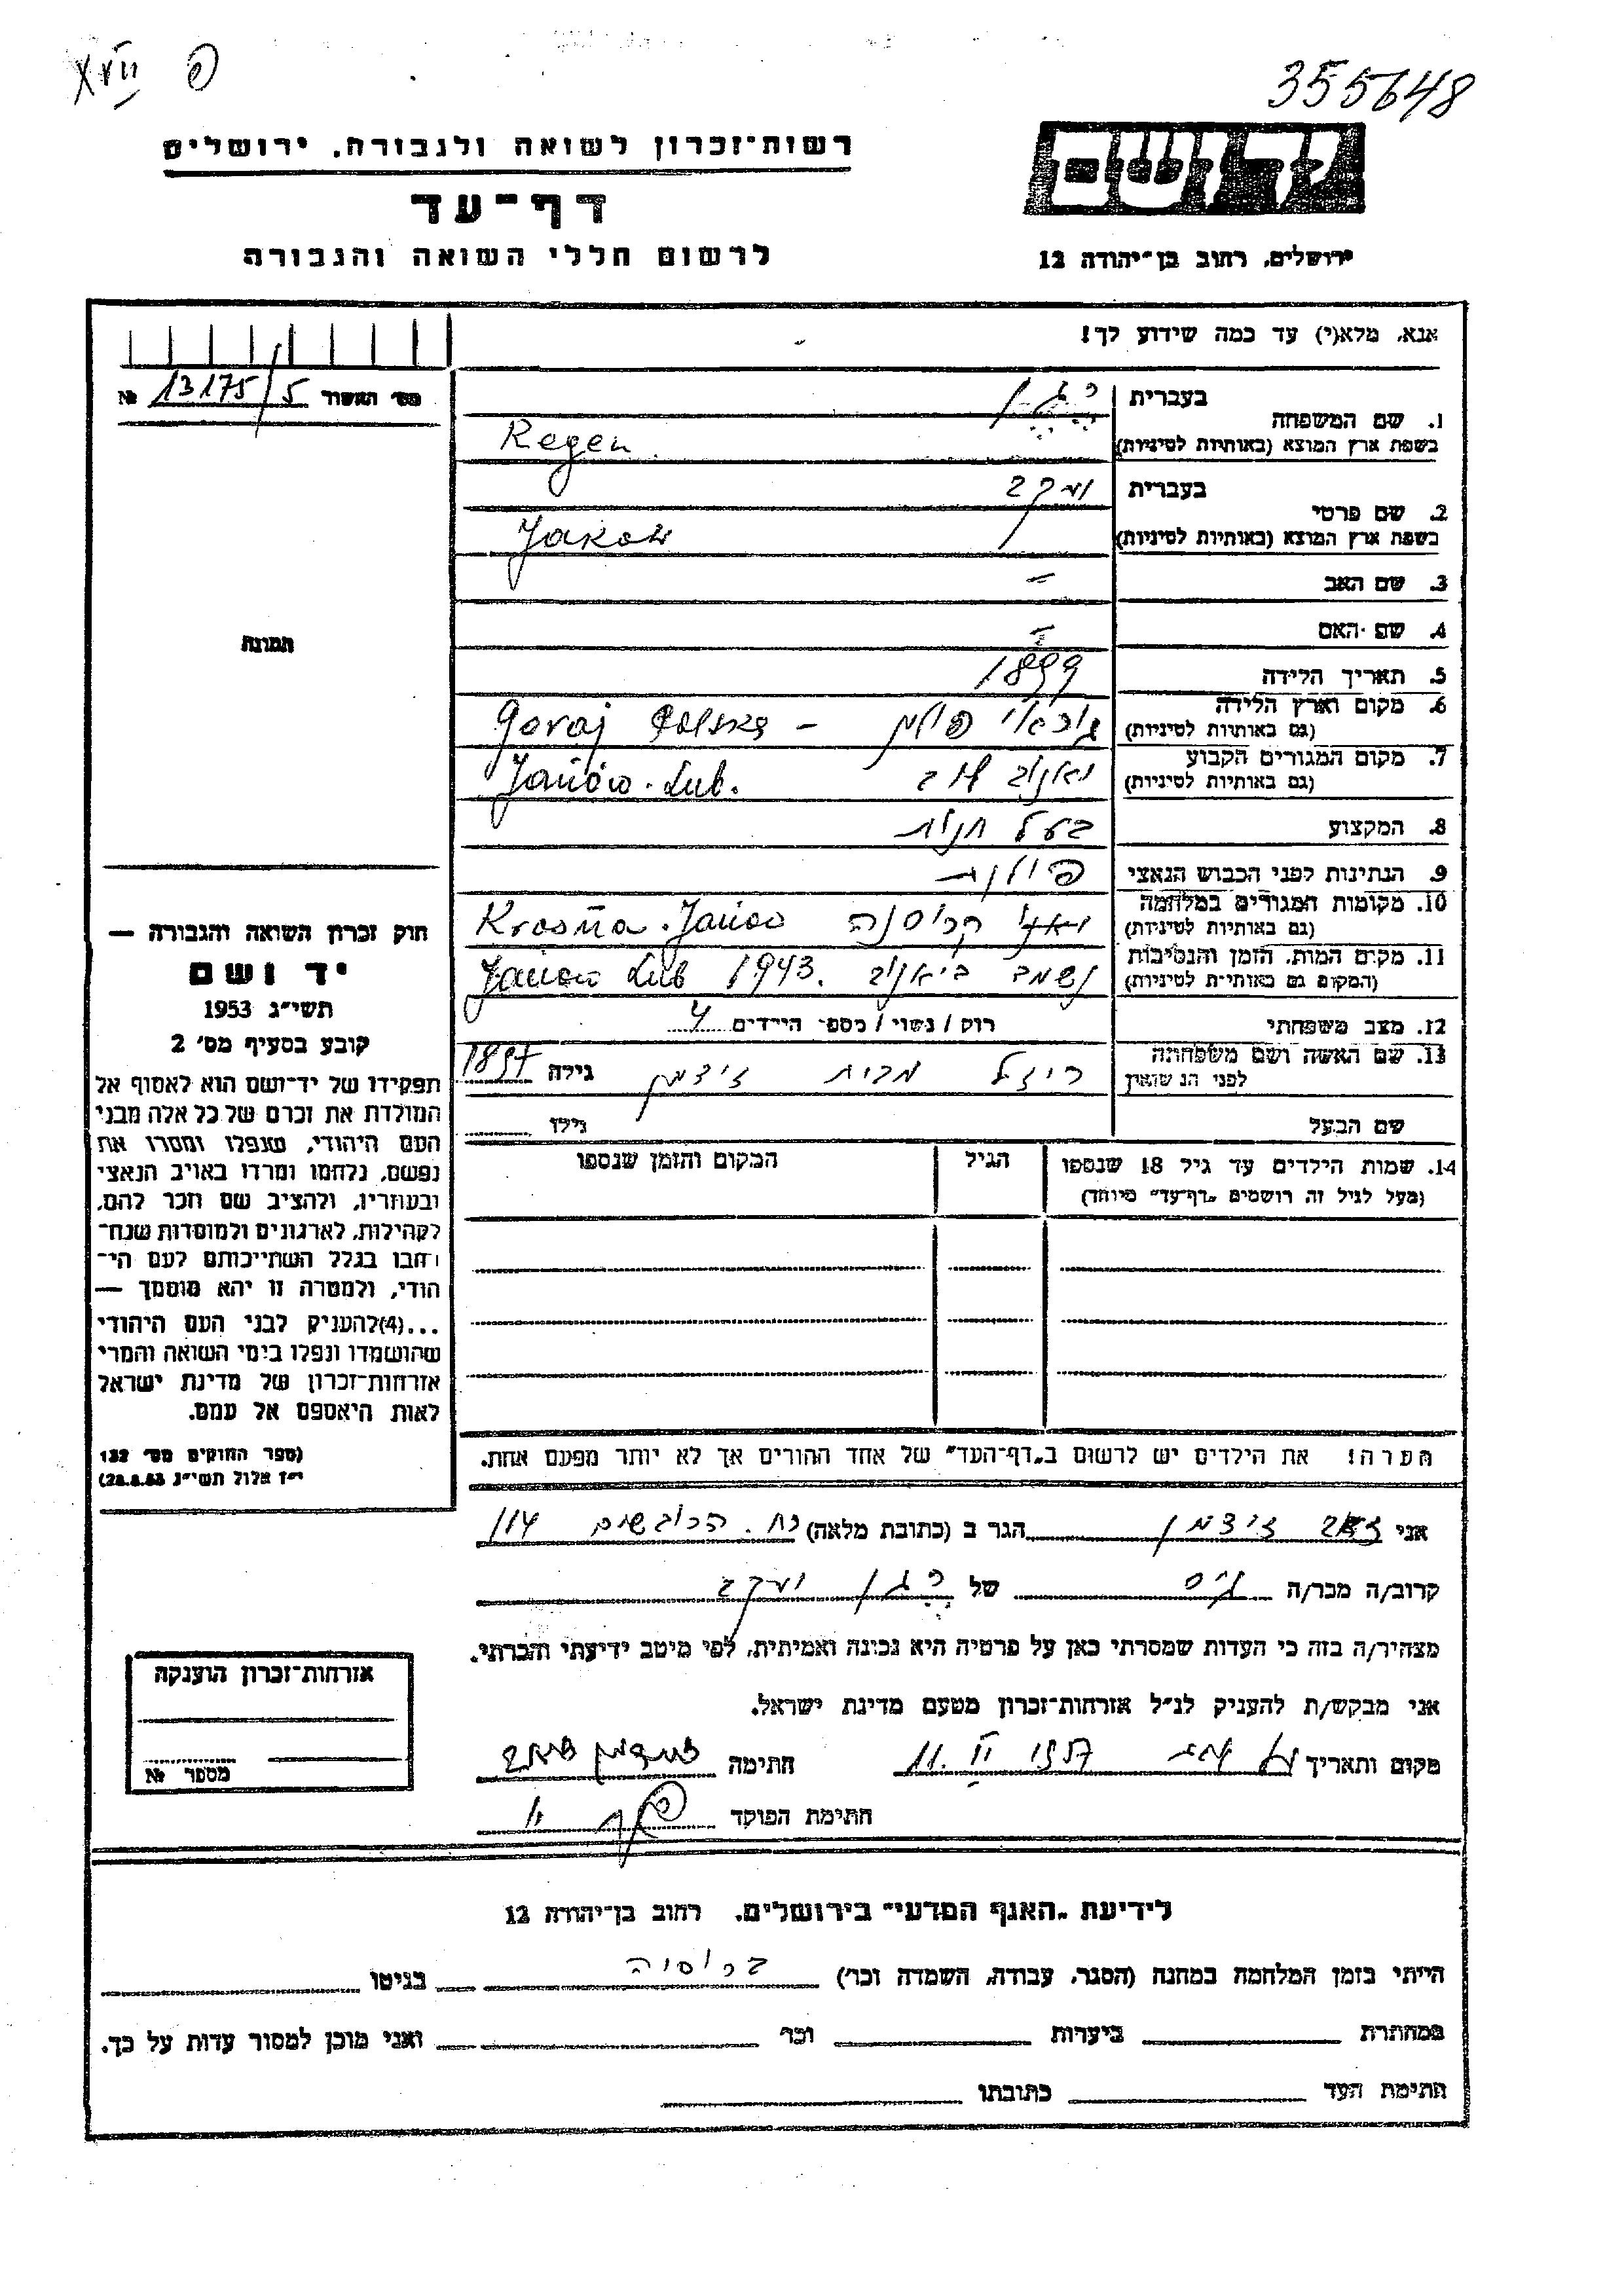 355648
פ XVII
יד ושם
רשות־זכרון לשואה ולגבורה, ירושלים
דף־עד
לרשום חללי השואה והגבורה
ירושלים, רחוב בן־יהודה 12
אנא, מלא(י) עד כמה שידוע לך!
מס׳ האשור 13175/5 №
1. שם המשפחה
בעברית רגן
בשפת ארץ המוצא (באותיות לטיניות) Regen
2. שם פרטי
בעברית יעקב
בשפת ארץ המוצא (באותיות לטיניות) Jakow
3. שם האב –
4. שם האם –
5. תאריך הלידה 1899
6. מקום וארץ הלידה
(גם באותיות לטיניות) גוראי פולין – Goraj Polska
7. מקום המגורים הקבוע
(גם באותיות לטיניות) יאנוב לוב Janów. Lub.
8. המקצוע בעל חנות
9. הנתינות לפני הכבוש הנאצי פולנית
10. מקומות המגורים במלחמה
(גם באותיות לטיניות) קרוסנה Krosńa. Janów
11. מקום המות, הזמן והנסיבות
(המקום גם באותיות לטיניות) נשמד ביאנוב Janow Lub 1943.
12. מצב משפחתי רוק / נשוי / מספר הילדים 4
13. שם האשה ושם משפחתה
לפני הנשואין רייזל מבית זיצמן גילה 1897
שם הבעל גילו
14. שמות הילדים עד גיל 18 שנספו
(מעל לגיל זה רושמים „דף־עד" מיוחד)
הגיל
המקום והזמן שנספו
הערה! את הילדים יש לרשום ב„דף־העד" של אחד ההורים אך לא יותר מפעם אחת.
תמונה
חוק זכרון השואה והגבורה —
יד ושם
תשי״ג 1953
קובע בסעיף מס׳ 2
תפקידו של יד־ושם הוא לאסוף אל
המולדת את זכרם של כל אלה מבני
העם היהודי, שנפלו ומסרו את
נפשם, נלחמו ומרדו באויב הנאצי
ובעוזריו, ולהציב שם וזכר להם,
לקהילות, לארגונים ולמוסדות שנח־
רבו בגלל השתייכותם לעם הי־
הודי, ולמטרה זו יהא מוסמך —
...(4)להעניק לבני העם היהודי
שהושמדו ונפלו בימי השואה והמרי
אזרחות־זכרון של מדינת ישראל
לאות היאספם אל עמם.
(ספר החוקים מס׳ 132
י״ז אלול תשי״ג 28.8.53)
אני זאב זיצמן הגר ב (כתובת מלאה) רח. 114
קרוב/ה מכר/ה גיס של רגן יעקב
מצהיר/ה בזה כי העדות שמסרתי כאן על פרטיה היא נכונה ואמיתית, לפי מיטב ידיעתי והכרתי.
אני מבקש/ת להעניק לנ״ל אזרחות־זכרון מטעם מדינת ישראל.
מקום ותאריך 11. II 1957 חתימה
חתימת הפוקד
אזרחות־זכרון הוענקה
מספר №
לידיעת „האגף המדעי" בירושלים, רחוב בן־יהודה 12
הייתי בזמן המלחמה במחנה (הסגר, עבודה, השמדה וכר) ברוסיה בגיטו
במחתרת ביערות וכר ואני מוכן למסור עדות על כך.
חתימת העד כתובתו